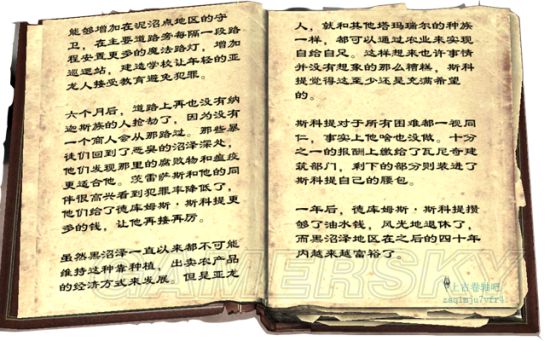 能够增加在泥沼点地区的守
卫，在主要道路旁每隔一段路
程安置更多的魔法路灯，增加
巡逻站，建造学校让年轻的亚
龙人接受教育避免犯罪。
六个月后，道路上再也没有纳
迦斯族的人抢劫了，因为没有
一个商人会从那路过。那些暴
徒们回到了恶臭的沼泽深处，
他们发现那里的腐败物和瘟疫
更适合他。茨雷萨斯和他的同
伴很高兴看到犯罪率降低了，
他们给了德库姆斯·斯科提更
多的钱，让他再接再厉。
虽然黑沼泽一直以来都不可能
维持这种靠种植，出卖农产品
的经济方式来发展。但是亚龙
人，就和其他塔玛瑞尔的种族
一样，都可以通过农业来实现
自给自足。这样想来也许事情
并没有想象的那么糟糕，斯科
提觉得这至少还是充满希望
的。
斯科提对于所有困难都一视同
仁，事实上他啥也没做。十分
之一的报酬上缴给了瓦尼奇建
筑部门，剩下的部分则装进了
斯科提自己的腰包。
一年后，德库姆斯·斯科提攒
够了油水钱，风光地退休了，
而黑沼泽地区在之后的四十年
内越来越富裕了。
GAMERSKY
上古卷轴吧
zaqimju7yfr4